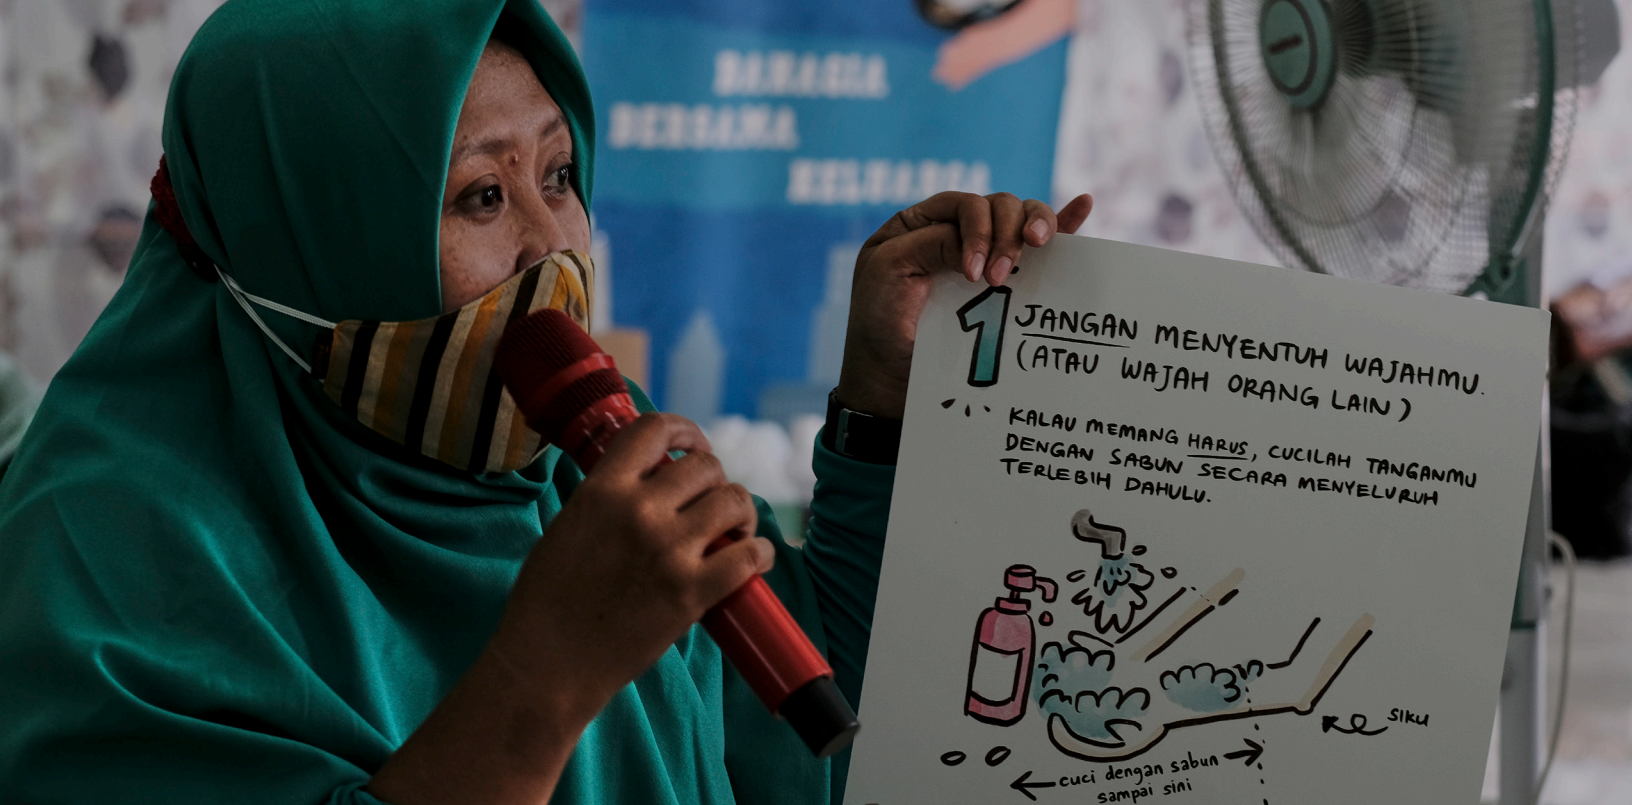 BAHAGIA
BERSAMA
KELUARGA
1
JANGAN MENYENTUH WAJAHMU.
(ATAU WAJAH ORANG LAIN)
KALAU MEMANG HARUS, CUCILAH TANGANMU
DENGAN SABUN SECARA MENYELURUH
TERLEBIH DAHULU.
KE SIKU
cuci dengan sabun
sampai sini